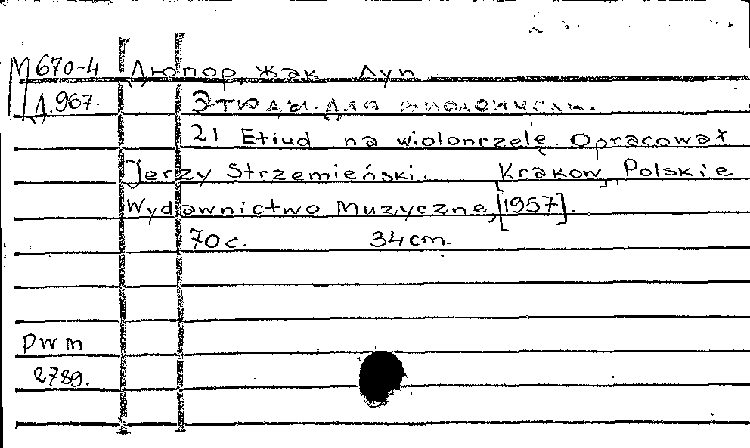 М670-4 Дюпор, Жак Луи
Д.967. Этюды для виолончели.
21 Etiud na wiolonczelę. Opracował
Jerzy Strzemieński. Krakow, Polskie
Wydawnictwo Muzyczne, [1957].
70 с. 34cm.
Pwm
2789.